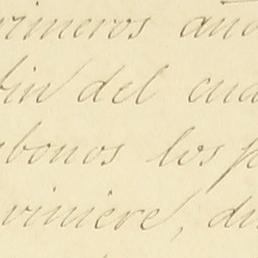 rimeros año
fin del cua
abonos los p
viniere, du